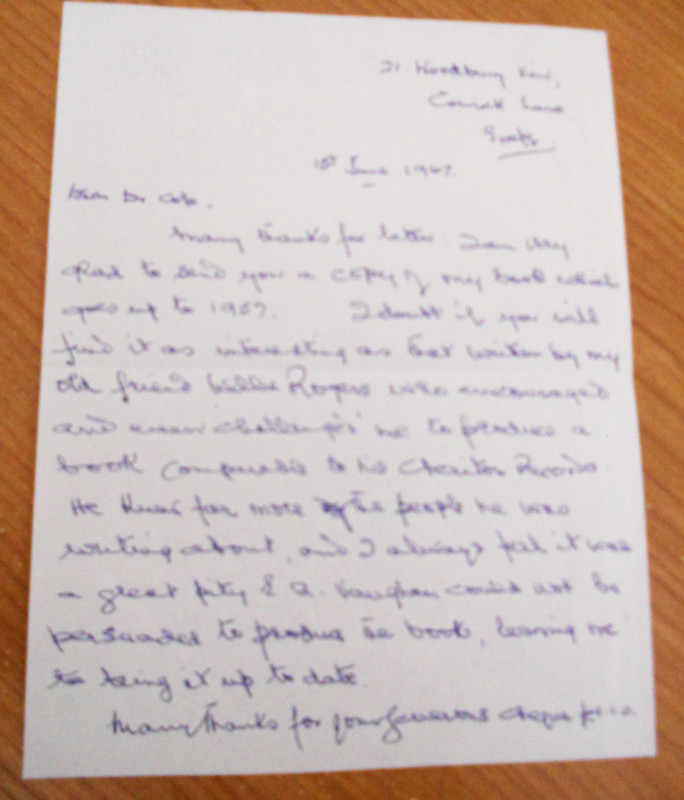 21. Woodbury View,
Lane
Exeter
1st June 1967.
Dear Dr. Cole,
Many thanks for letter. I am very
glad to send you a copy of my book which
goes up to 1967. I doubt if you will
find it as interesting as that written by my
old friend Willie Rogers who encouraged
and even challenged me to produce a
book comparable to his Cheriton Records.
He knew far more of the people he was
writing about, and I always feel it was
a great pity E. A. Vaughan could not be
persuaded to produce the book, leaving me
to bring it up to date.
Many thanks for your generous cheque